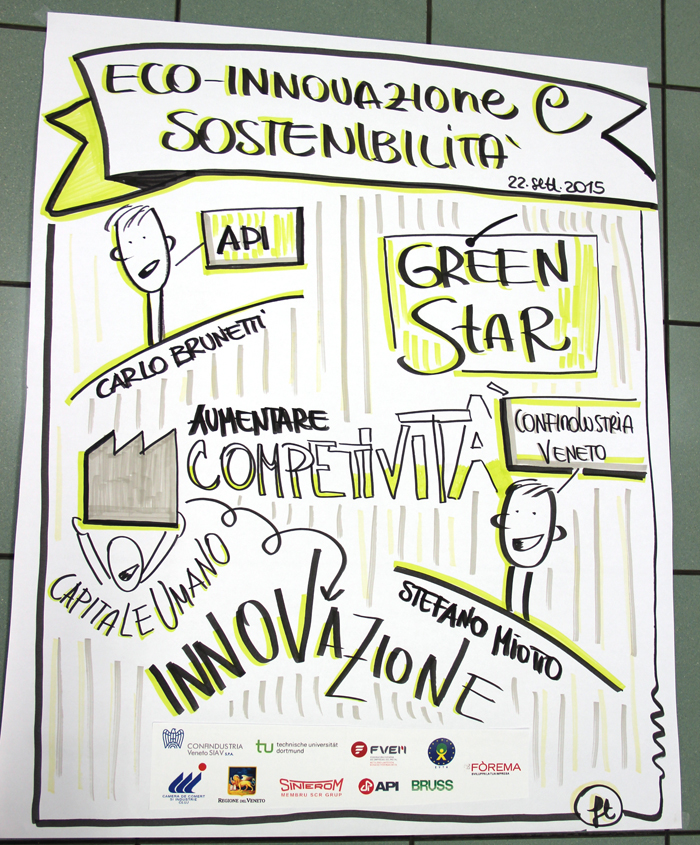 ECO-INNOVAZIONE E
SOSTENIBILITA'
22.Sett.2015
API
CARLO BRUNETTI
GREEN
STAR
AUMENTARE
COMPETIVITTÀ
CONFINDUSTRIA
VENETO
CAPITALE UMANO
STEFANO MIOTTO
INNOVAZIONE
CONFINDUSTRIA
Veneto SIAV S.P.A.
tu technische universität
dortmund
FVEM
FÒREMA
SVILUPPA LA TUA IMPRESA
CAMERA DE COMERT
SI INDUSTRIE
OLCU
REGIONE DEL VENETO
SINTEROM
MEMBRU SCR GRUP
API
BRUSS
ft